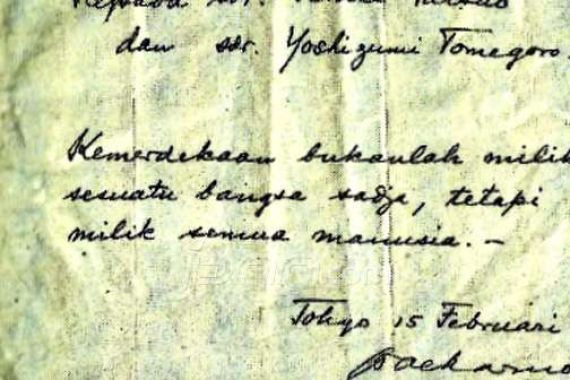 Kepada sdr.
dan sdr. Yoshizumi Tomegoro.
Kemerdekaan bukanlah milik
sesuatu bangsa sadja, tetapi
milik semua manusia. –
Tokyo 15 Februari
Soekarno